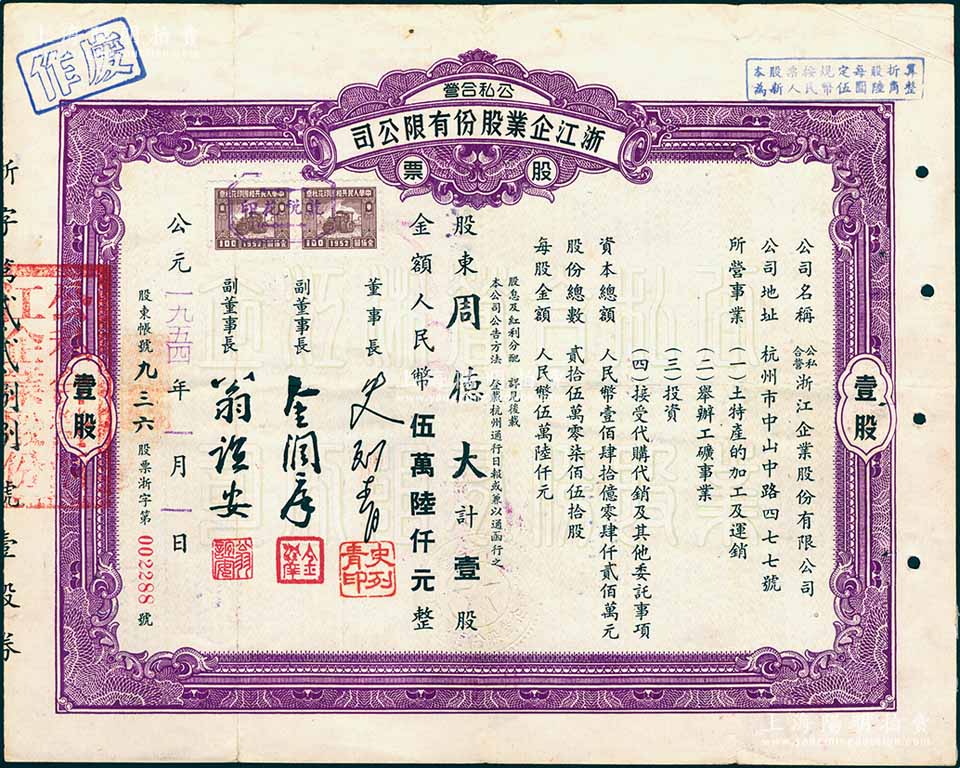 作廢
本股票按規定每股折算
為新人民幣伍圓陸角整
公私合營
浙江企業股份有限公司
股票
公司名稱 公私合營浙江企業股份有限公司
公司地址 杭州市中山中路四七七號
所營事業 (一)土特產的加工及運銷
(二)舉辦工礦事業
(三)投資
(四)接受代購代銷及其他委託事項
資本總額 人民幣壹佰肆拾億零肆仟貳佰萬元
股份總數 貳拾伍萬零柒佰伍拾股
每股金額 人民幣伍萬陸仟元
股息及紅利分配 詳見後載
本公司公告方法 登載杭州通行日報或兼以通函行之
股東周德大計壹股
金額人民幣伍萬陸仟元整
董事長 史列青
史列青印
副董事長 金潤庠
副董事長 翁詒安
公元一九五四年一月一日
股東帳號九三六 股票浙字第002288號
壹股
壹股
中華人民共和國印花稅票
100 1952
中華人民共和國印花稅票
100 1952
浙字第貳貳捌捌號壹股券
上海陽明拍賣
www.yangmingauction.com